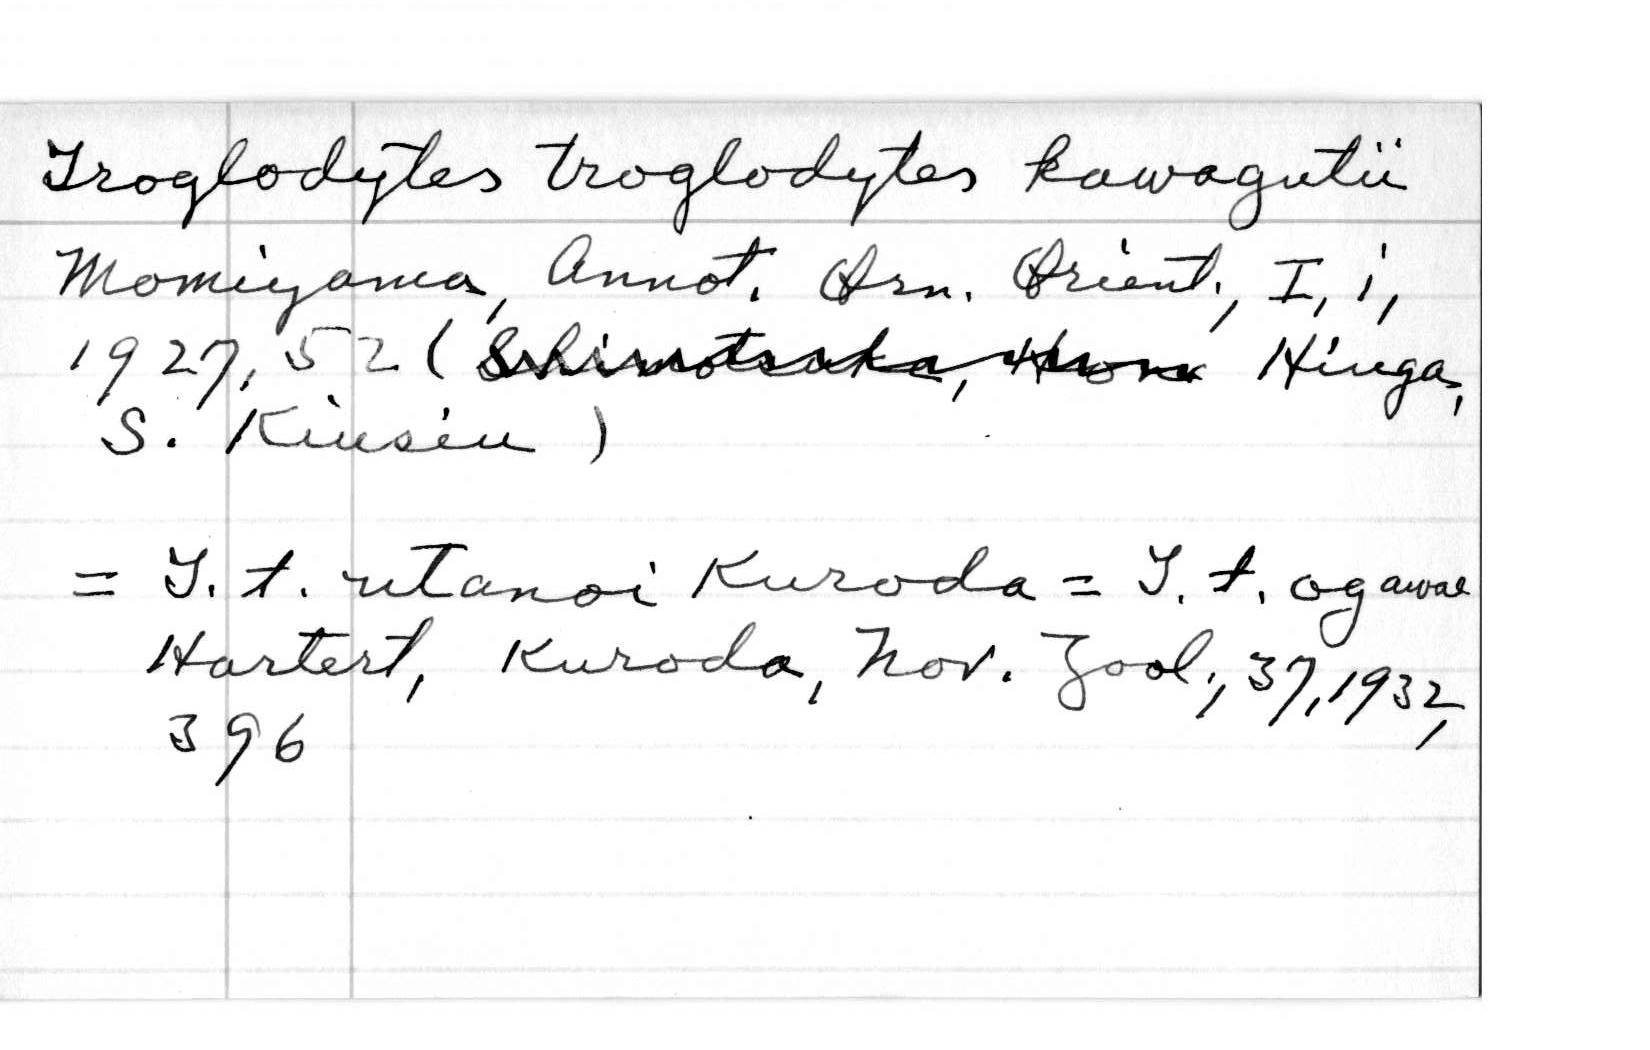 Troglodytes troglodytes kawagutii
Momiyama, Annot. Orn. Orient., I, i,
1927, 52 (Shimotsuke, Hon Hiuga,
S. Kiusiu)
= T. t. utanoi Kuroda = T. t. ogawae
Hartert, Kuroda, Nov. Zool., 37, 1932,
396